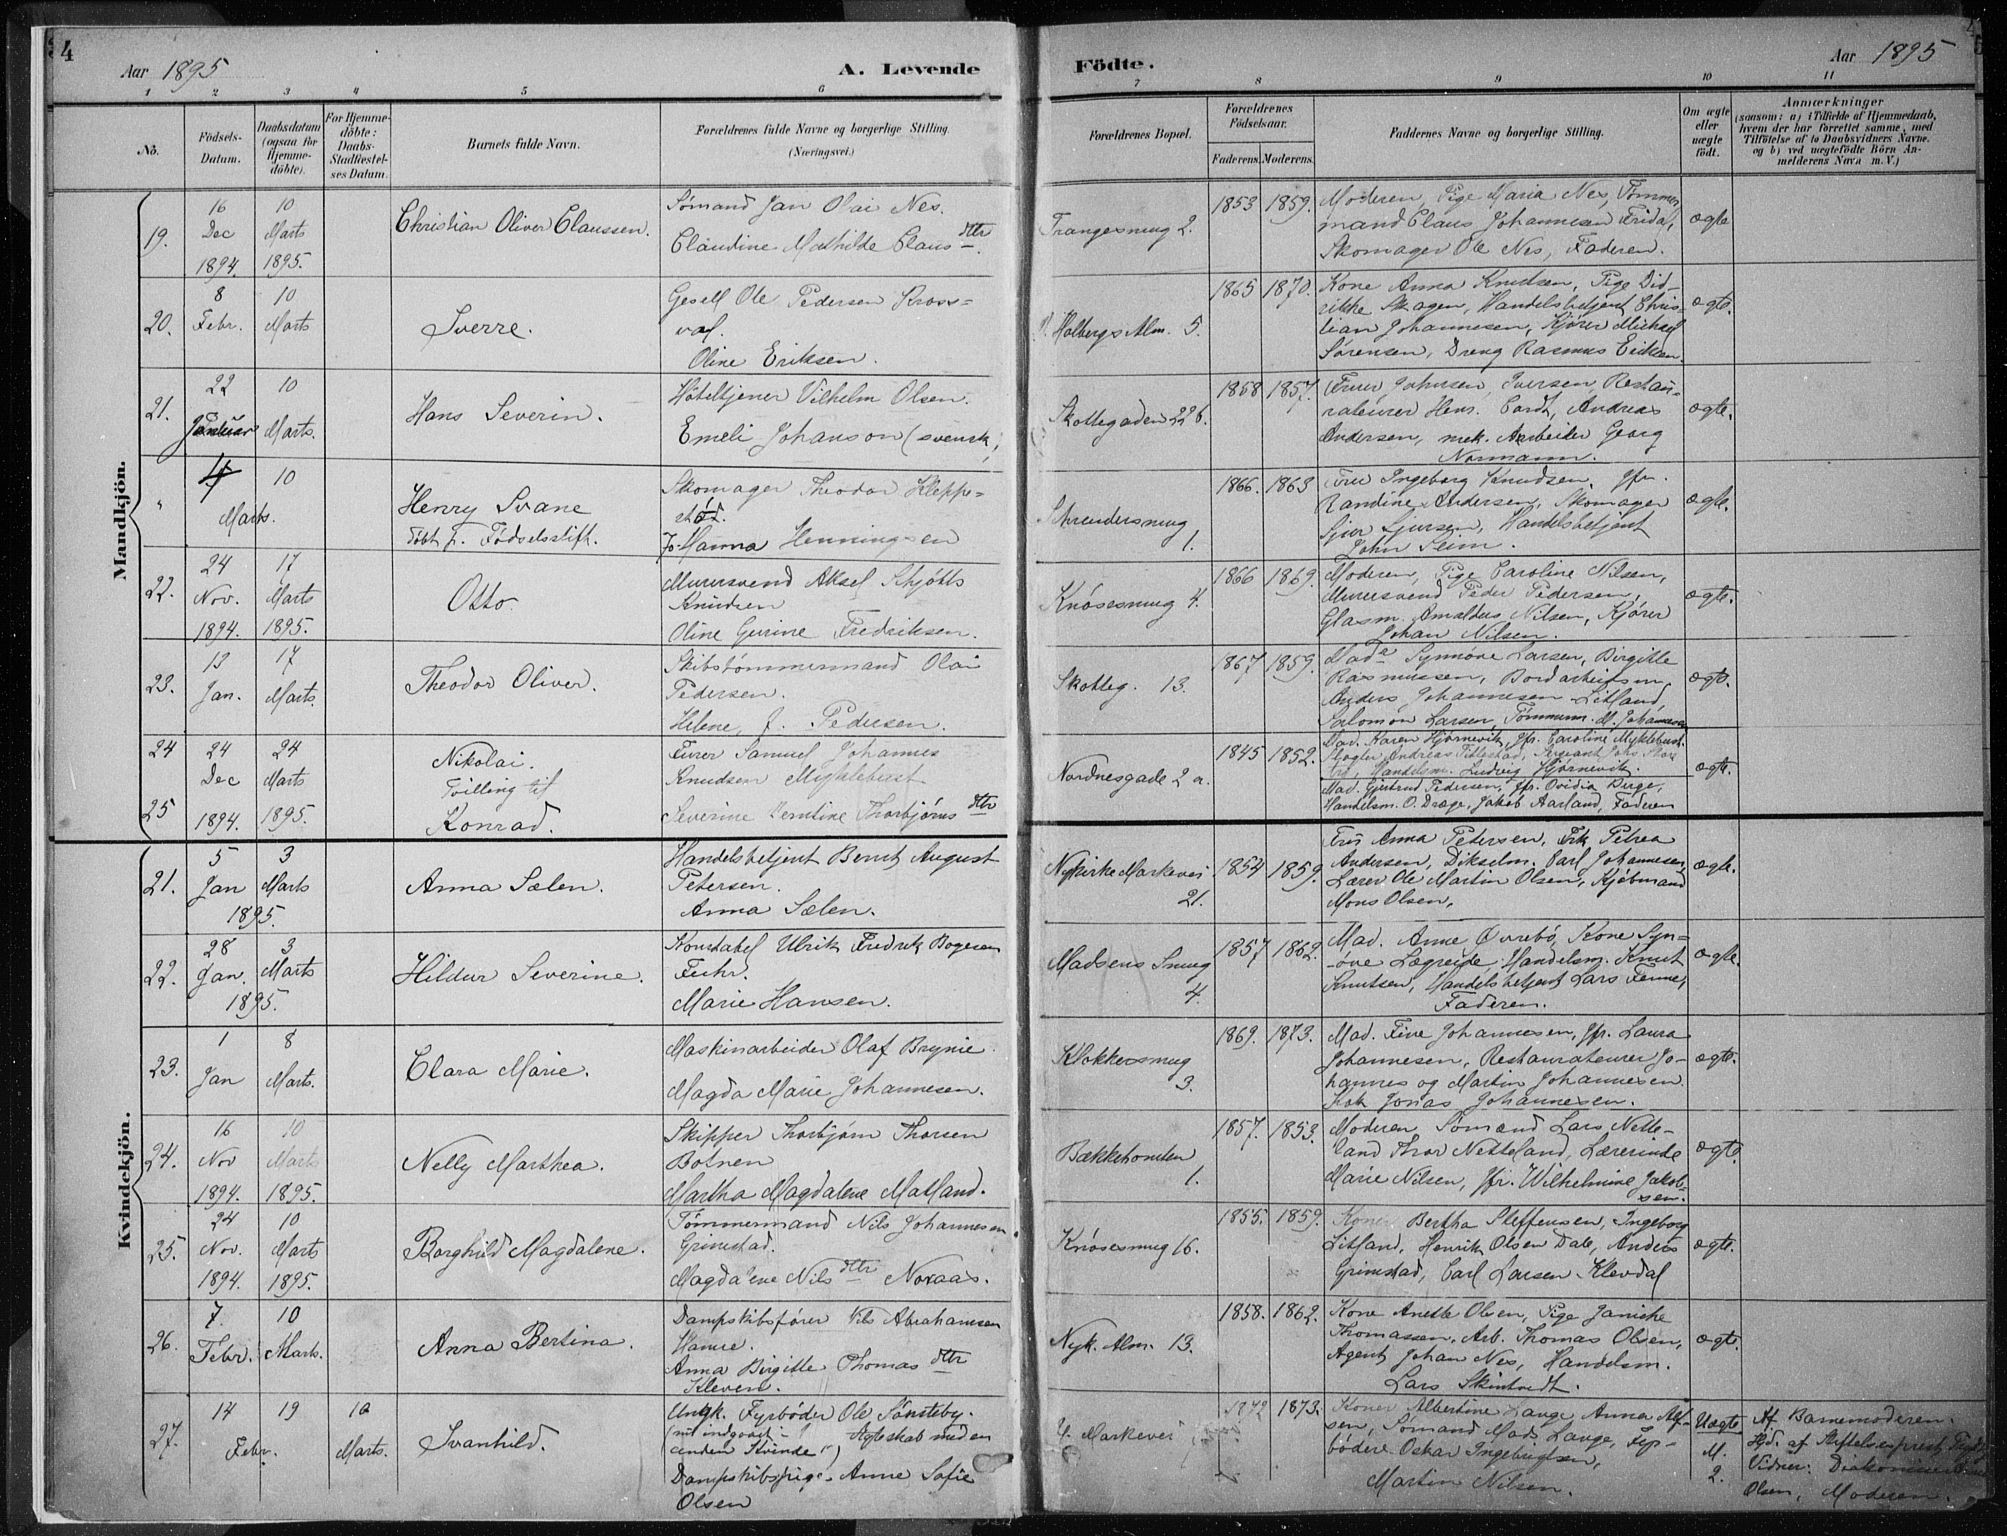 4
Aar 1895
A. Levende
Födte.
Aar 1895
1 2 3 4 5 6 7 8 9 10 11
No.
Födsels-
Datum.
Daabsdatum
(ogsaa for
Hjemme-
döbte).
For Hjemme-
döbte:
Daabs-
Stadfæstel-
ses Datum.
Barnets fulde Navn.
Forældrenes fulde Navne og borgerlige Stilling.
(Næringsvei.)
Forældrenes Bopæl.
Forældrenes
Födselsaar.
Faderens. Moderens.
Faddernes Navne og borgerlige Stilling.
Om ægte
eller
uægte
født.
Anmærkninger
(saasom: a) i Tilfælde af Hjemmedaab,
hvem der har forrettet samme, med
Tilföielse af to Daabsvidners Navne.
og b) ved uægtefödte Börn An-
melderens Navn m. V.)
Mandkjön.
19.
16
Dec
1894.
10
Marts
1895.
Christian Oliver Claussen.
Sømand Jan Olai Nes.
Claudine Mathilde Clausdtr
Trangesmug 2.
1853 1859.
Moderen, Pige Maria Nes, Tømmer
mand Claus Johannesen Fridal,
Skomager Ole Nes, Faderen.
ægte
20.
8
Febr.
10
Marts
Sverre.
Gesell Ole Pedersen Kross-
vaf.
Oline Eriksen.
Holbergs Alm. 5.
1865 1870.
Kone Anna Knudsen, Pige Did-
rikke Skagen, Handelsbetjent Chris-
tian Johannesen, Kjører Michael
Sørensen, Dreng Rasmus Eriksen.
ægte.
21.
22
Januar
10
Marts.
Hans Severin.
Hôteltjener Vilhelm Olsen.
Emeli Johanson (svensk)
Skottegaden 22 b.
1858 1857.
Fruer Johnsen, Iversen, Restau-
rateurer Hem. Cardt, Andreas
Andersen, mek. Arbeider Georg
Normann.
ægte.
"
4
Marts.
10
Henry Svane
døbt f. Fødselsstift.
Skomager Theodor Kleppe-
stød.
Johanna Henningsen
Strendersmug
1.
1866. 1863
Fru Ingeborg Knudsen, Jfr.
Randine Andersen, Skomager
Sjur Sjursen, Handelsbetjent
John Seim.
ægte.
22.
24
Nov.
1894.
17
Marts
1895.
Otto.
Murersvend Aksel Skjøtts
Knudsen
Oline Gurine Fredriksen.
Knøsesmug 4.
1866 1869.
Moderen, Pige Caroline Nilsen,
Murersvend Peder Pedersen,
Glasm. Amaldus Nilsen, Kjører
Johan Nilsen.
ægte.
23.
13
Jan.
17
Marts.
Theodor Oliver.
Skibstømmermand Olai
Pedersen.
Helene f. Pedersen.
Skotteg. 13.
1867 1859.
Madr Synnøve Larsen, Birgitte
Rasmussen, Bordarbeidsm.
Anders Johannesen Litland,
Salomon Larsen, Tømmerm. M. Johannesen
ægte.
24
25
24
Dec
1894.
24
Marts
1895.
Nikolai.
Tvilling til
Konrad.
Furer Samuel Johannes
Knudsen Myklebust
Severine Berntine Thorbjørnsdtr
Nordnesgade 2 a.
1845 1852.
Mad. Karen Hjørnevik, Jfr. Caroline Myklebust.
Handelsm. Ludvig Hjørnevik.
Mad. Gjertrud Pedersen, Jfr. Ovidia Birge,
Handelsm. O. Dræge, Jakob Aarland, Faderen
ægte.
Kvindekjön.
21.
5
Jan
1895.
3
Marts
Anna Sælen.
Handelsbetjent Bernt August
Petersen.
Anna Sælen.
Nykirke Markevei
21.
1854 1859.
Fru Anna Petersen, Frk Petrea
Andersen, Dikselm. Carl Johannesen,
Lærer Ole Martin Olsen, Kjøbmand
Mons Olsen.
ægte.
22.
28
Jan.
1895.
3
Marts
Hildur Severine.
Konstabel Ulrik Fredrik Bogesen
Fuhr.
Marie Hansen.
Madsens Smug
4.
1857 1862.
Mad. Anne Øvrebø, Kone Syn-
nøve Lægreide, Handelsm. Knut
Knutsen, Handelsbetjent Lars Fenne,
Faderen.
ægte.
23.
1
Jan
8
Marts.
Clara Marie.
Maskinarbeider Olaf Brynie.
Magda Marie Johannesen.
Klokkersmug
3.
1869. 1873.
Mad. Fine Johannesen, Jfr. Laura
Johannesen, Restaurateurer Jo-
hannes og Martin Johannesen.
Kok Jonas Johannesen.
ægte.
24.
16
Nov
1894.
10
Marts
1895.
Nelly Marthea.
Skipper Thorbjørn Thorsen
Botnen
Martha Magdalene Matland.
Bækketomten
1.
1857. 1853.
Moderen Sømand Lars Nette-
land Thor Netteland, Lærerinde
Marie Nilsen, Jfr. Wilhelmine Jakob-
sen.
ægte.
25.
24
Nov.
1894.
10
Marts
1895.
Borghild Magdalene.
Tømmermand Nils Johannesen
Grimstad.
Magdalene Nilsdtr Noraas.
Knøsesmug 16.
1855. 1859.
Koner Bertha Steffensen, Ingeborg
Litland, Henrik Olsen Dale, Anders
Grimstad, Carl Larsen Klevdal
ægte.
26.
7.
Febr.
10
Mark.
Anna Bertina.
Dampskibsfører Nils Abrahamsen
Hamre.
Anna Birgitte Thomasdtr
Kleven.
Nyk. Alm. 13.
1858. 1862.
Kone Anette Olsen, Pige Janiske
Thomassen, Arb. Thomas Olsen,
Agent Johan Nes, Handelsm.
Lars Skintvedt.
ægte.
27.
14
Febr.
19
10
Marts.
Svanhild.
Ungk. Fyrbøder Ole Sønsteby.
(nu indgaaet i Ægteskab med en
anden Kvinde)
Dampskibspige Anne Sofie
Olsen
Markevei
1872 1873.
Koner Albertine Lange, Anna Alf-
sen, Sømand Mads Lange, Fyr-
bødere Oskar Ingebrigtsen,
Martin Nilsen.
Uægte
M.
2.
Af Barnemoderen.
Hjd. af Stiftelsesprest
Vidner: Diakonisse
Olsen, Moderen.